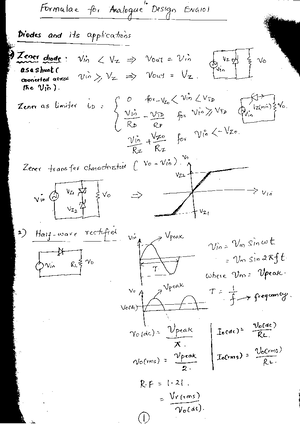 Formulae for Analogue Design ENG101
Diodes and its applications
Zener diode: Vin < VZ ⇒ Vout = Vin
as a shunt (connected across the Vin).
Vin ≥ VZ ⇒ Vout = VZ.
Zener as limiter iD:
0 for -VZ < Vin < VTD
Vin/RD - VTD/RD for Vin ≥ VTD
Vin/RZ + VZ0/RZ for Vin < -VZ0.
Zener transfer characteristic (Vo - Vin).
Vo
VZ2
Vin
VZ1
Vin
VZ1
VZ2
Vo
⇒
2) Half-wave rectifier
Vin
RL
Vo
Vin
Vpeak
T
Vo
Vpeak
Vo(dc)
Vin = Vm sin ωt
= Vm sin 2πft
where Vm = Vpeak.
T = 1/f → frequency.
Vo(dc) = Vpeak/π
Io(dc) = Vo(dc)/RL
Vo(rms) = Vpeak/2
Io(rms) = Vo(rms)/RL
R.F = 1.21
= Vr(rms)/Vo(dc).
1